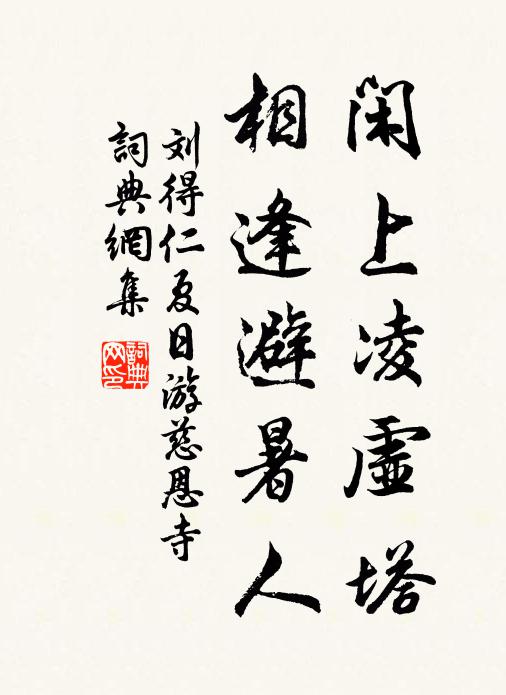 闲上凌虚塔
相逢避暑人
刘得仁夏日游慈恩寺
詞典網集
詞典网印